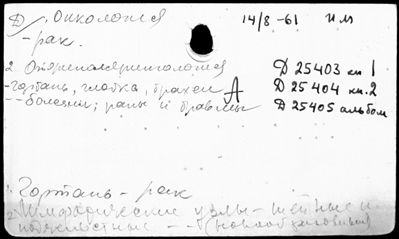 Д/ Онкология 14/8-61 им
- рак.
2. Оториноларингология Д 25403 кн 1
- гортань, глотка, трахеи А Д 25404 кн. 2
-- болезни; раны и травмы Д 25405 альбом
1. Гортань - рак
2. Лимфатические узлы - шейные и
подчелюстные -- (новообразования)